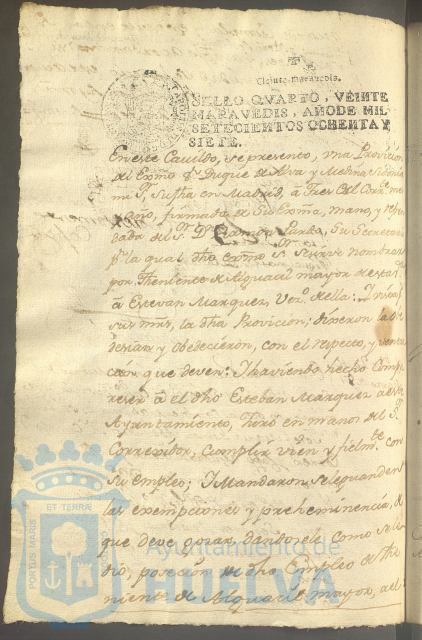 Veinte maravedis.
SELLO QVARTO, VEINTE
MARAVEDIS, AÑO DE MIL
SETECIENTOS OCHENTA Y
SIETE.
En este Cavildo, se presento, una Provicion
del Exmo Sr Duque de Alva y Medina Sidonia
mi Sr, su fha en Madrid, à Tres del Corrte mes
y año, firmada de Su Exma, mano, y refren
dada del Sr Dn Ramon, Su Secretario
Pr la qual dho exmo Sr se sirve nombrar
por Theniente de Alguacil mayor de esta
à Estevan Marquez, Vezo della: I vista
sus mrs, la dha Provicion; dixeron la
desian y obedecieron, con el respecto, y venera
cion que deven: I haviendo hecho Compa
reser à el dho Esteban Marquez a este
Ayuntamiento, Juró en manos del Sr
Corregidor, Cumplir vien y fielmte con
Su empleo; I Mandaron se le guanden
las exempciones y preheminencia,
que deve gosar, dandosele Como se le
dio, posecion de dho Empleo de The
niente de Alguacil mayor,
PORTUS MARIS ET TERRÆ
Ayuntamiento de
HUELVA